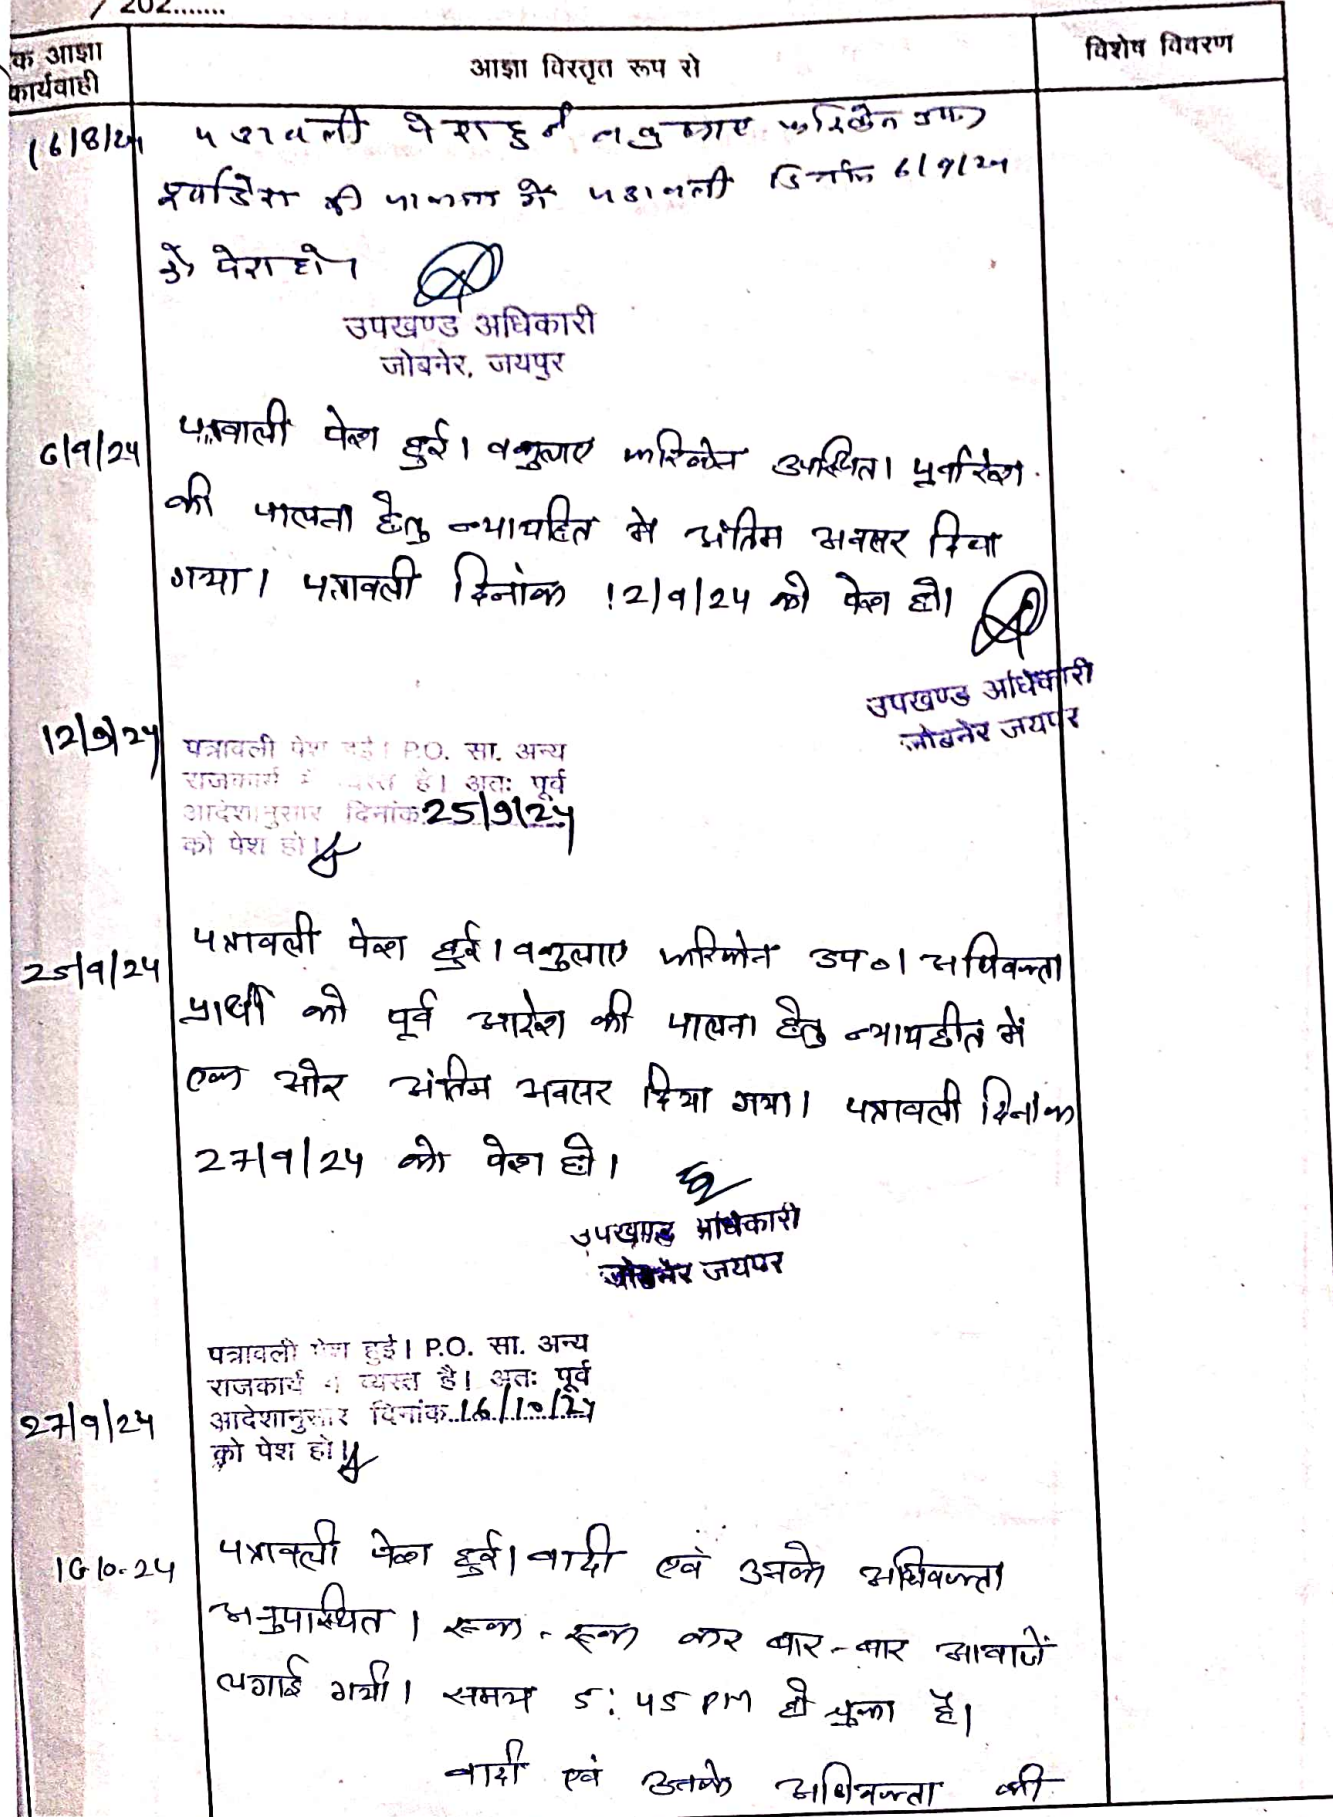 / 202.......
क आज्ञा
कार्यवाही
आज्ञा विस्तृत रूप से
विशेष विवरण
16/8/24 पत्रावली पेश हुई वकुलाए फरिकेन उप०
पूर्वादेश की पालना में पत्रावली दिनांक 6/9/24
को पेश हो।
उपखण्ड अधिकारी
जोबनेर, जयपुर
6/9/24 पत्रावली पेश हुई। वकुलाए फरिकेन उपस्थित। पूर्वादेश
की पालना हेतु न्यायहित मे अंतिम अवसर दिया
गया। पत्रावली दिनांक 12/9/24 को पेश हो।
उपखण्ड अधिकारी
जोबनेर जयपुर
12/9/24 पत्रावली पेश हुई। P.O. सा. अन्य
राजकार्य में व्यस्त है। अतः पूर्व
आदेशानुसार दिनांक 25/9/24
को पेश हो।
25/9/24 पत्रावली पेश हुई। वकुलाए फरिकेन उप०। अधिवक्ता
प्रार्थी को पूर्व आदेश की पालना हेतु न्यायहीत में
एक ओर अंतिम अवसर दिया गया। पत्रावली दिनांक
27/9/24 को पेश हो।
उपखण्ड अधिकारी
जोबनेर जयपुर
पत्रावली पेश हुई। P.O. सा. अन्य
राजकार्य में व्यस्त है। अतः पूर्व
27/9/24 आदेशानुसार दिनांक 16/10/24
को पेश हो।
16 10-24 पत्रावली पेश हुई। वादी एवं उसके अधिवक्ता
अनुपास्थित। रूक-रूक कर बार-बार आवाजें
लगाई गयी। समय 5:45 PM हो चुका है।
वादी एवं उसके अधिवक्ता की